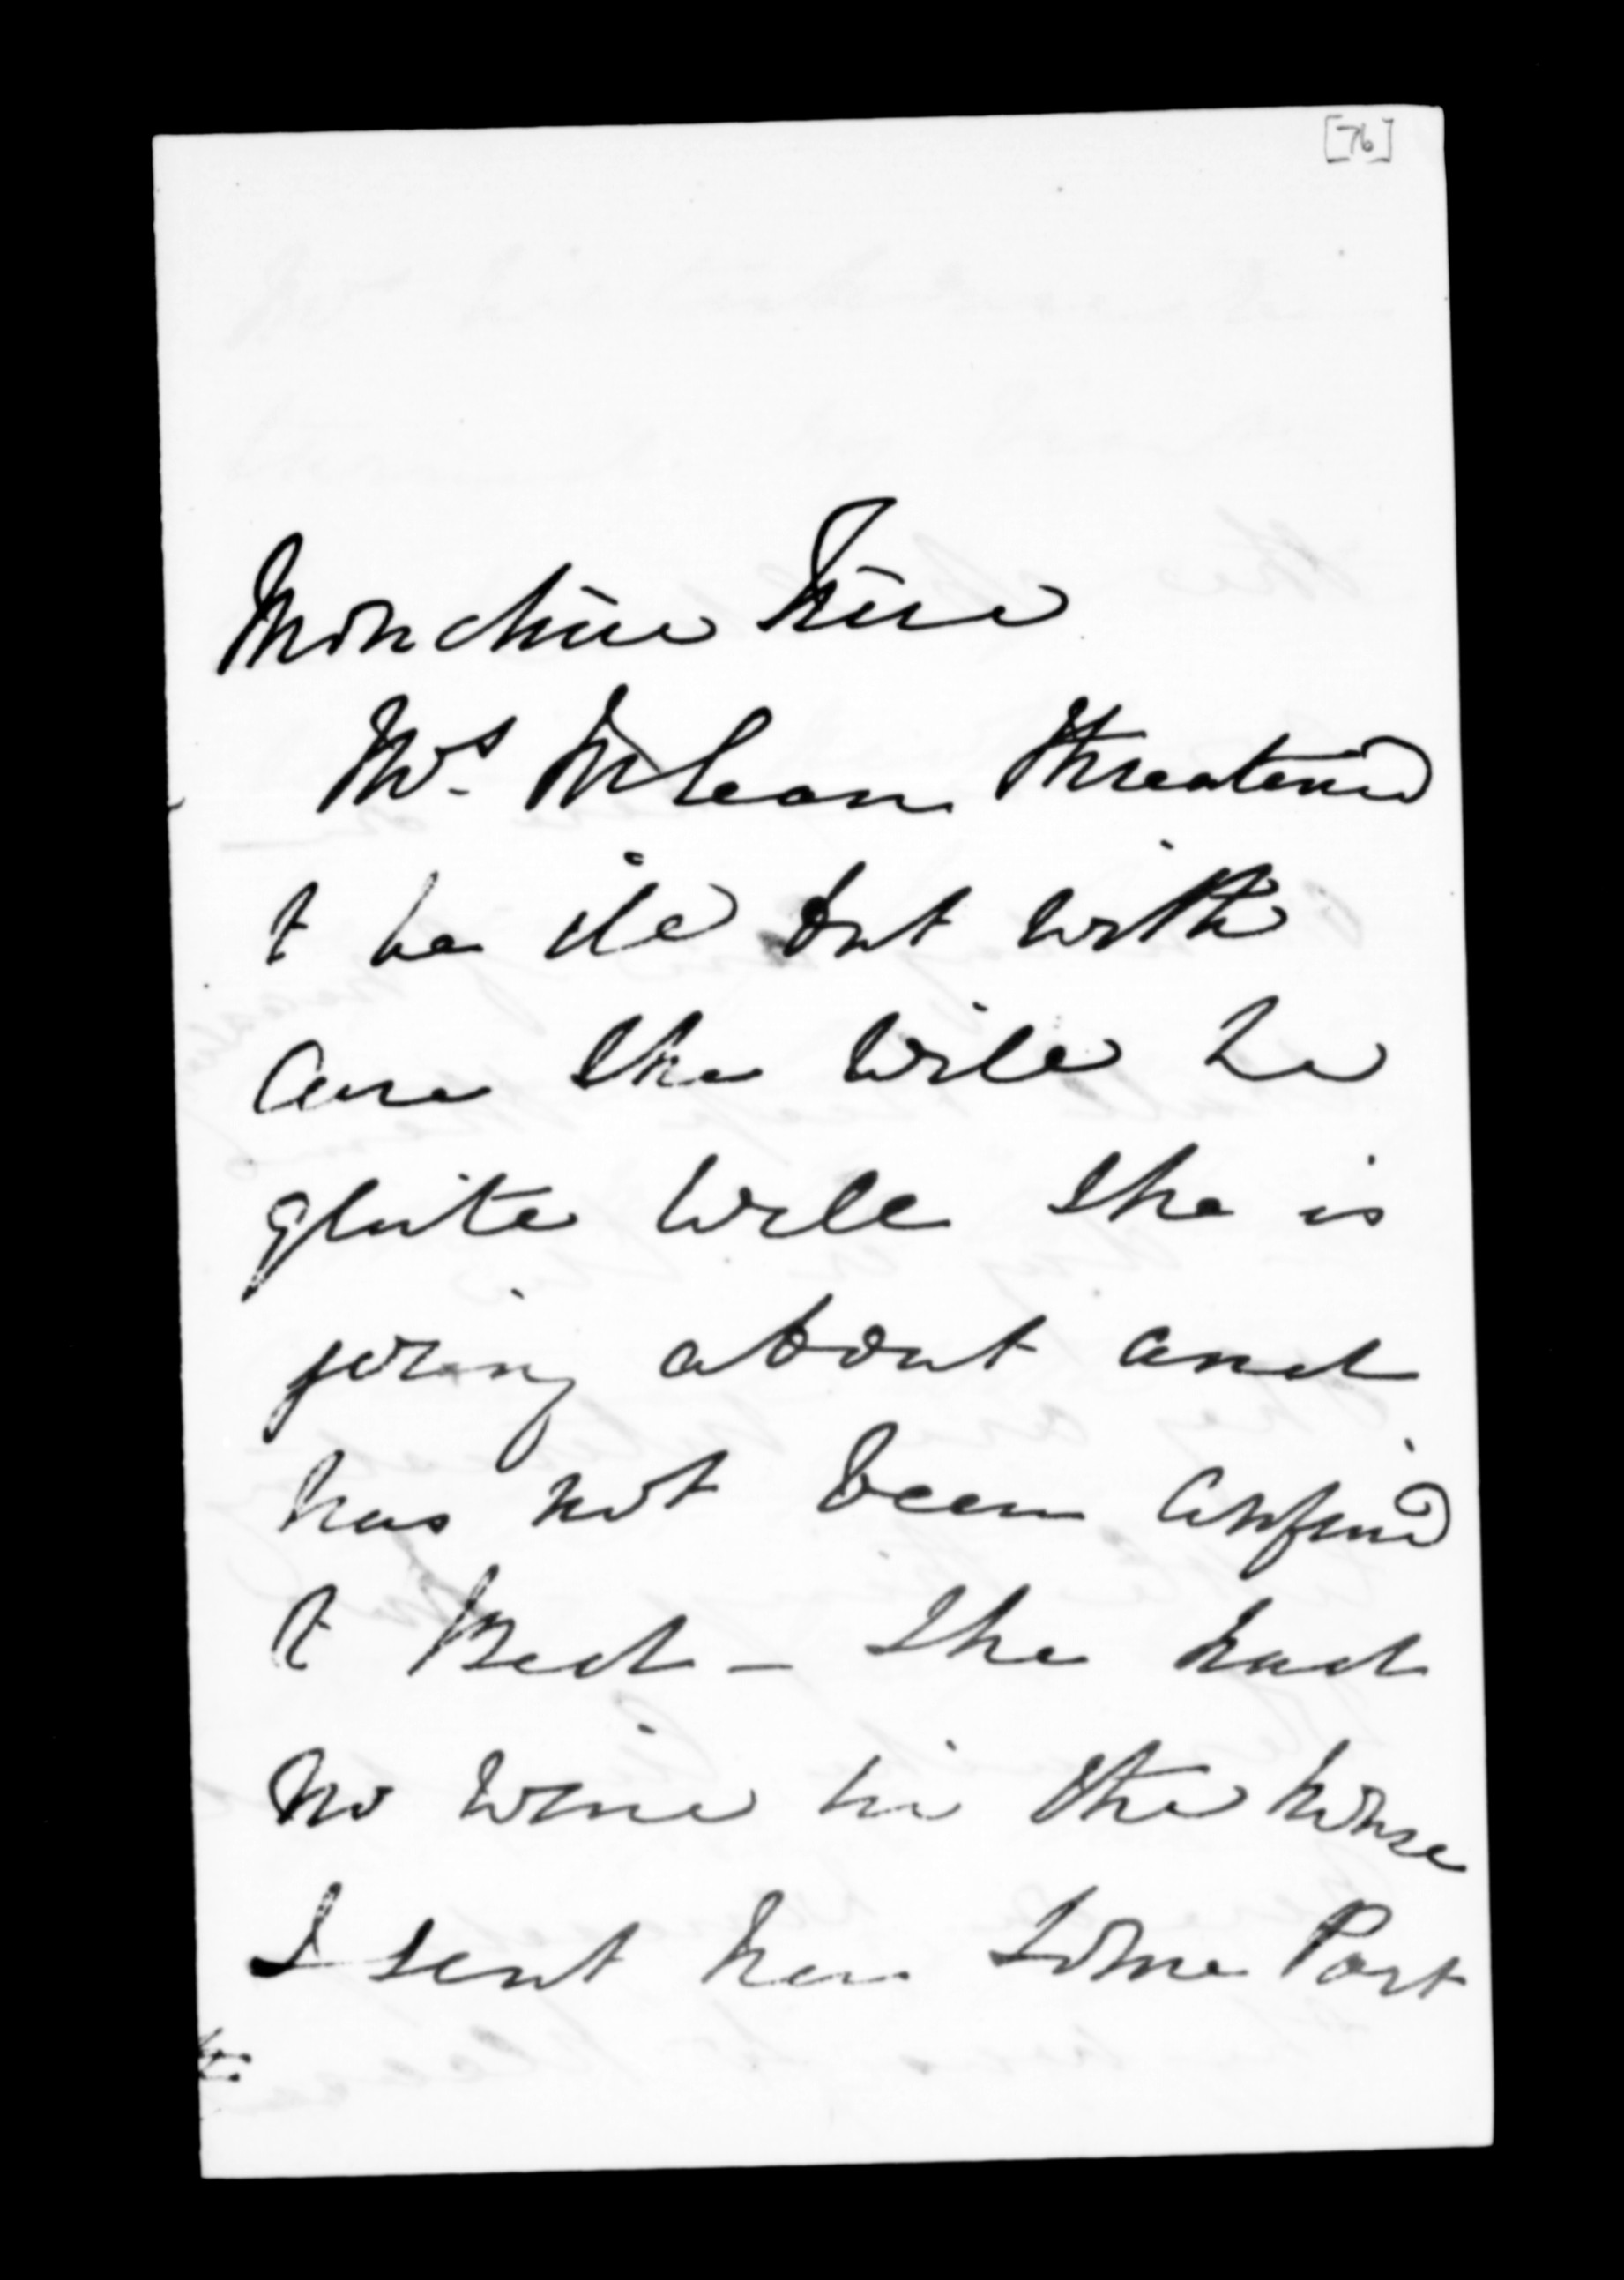 [76]
Mon chère Frère
Mrs McLean threatened
to be ill but with
Care she will be
quite well she is
going about and
has not been confined
to Bed - She had
no wine in the house
I sent her some Port